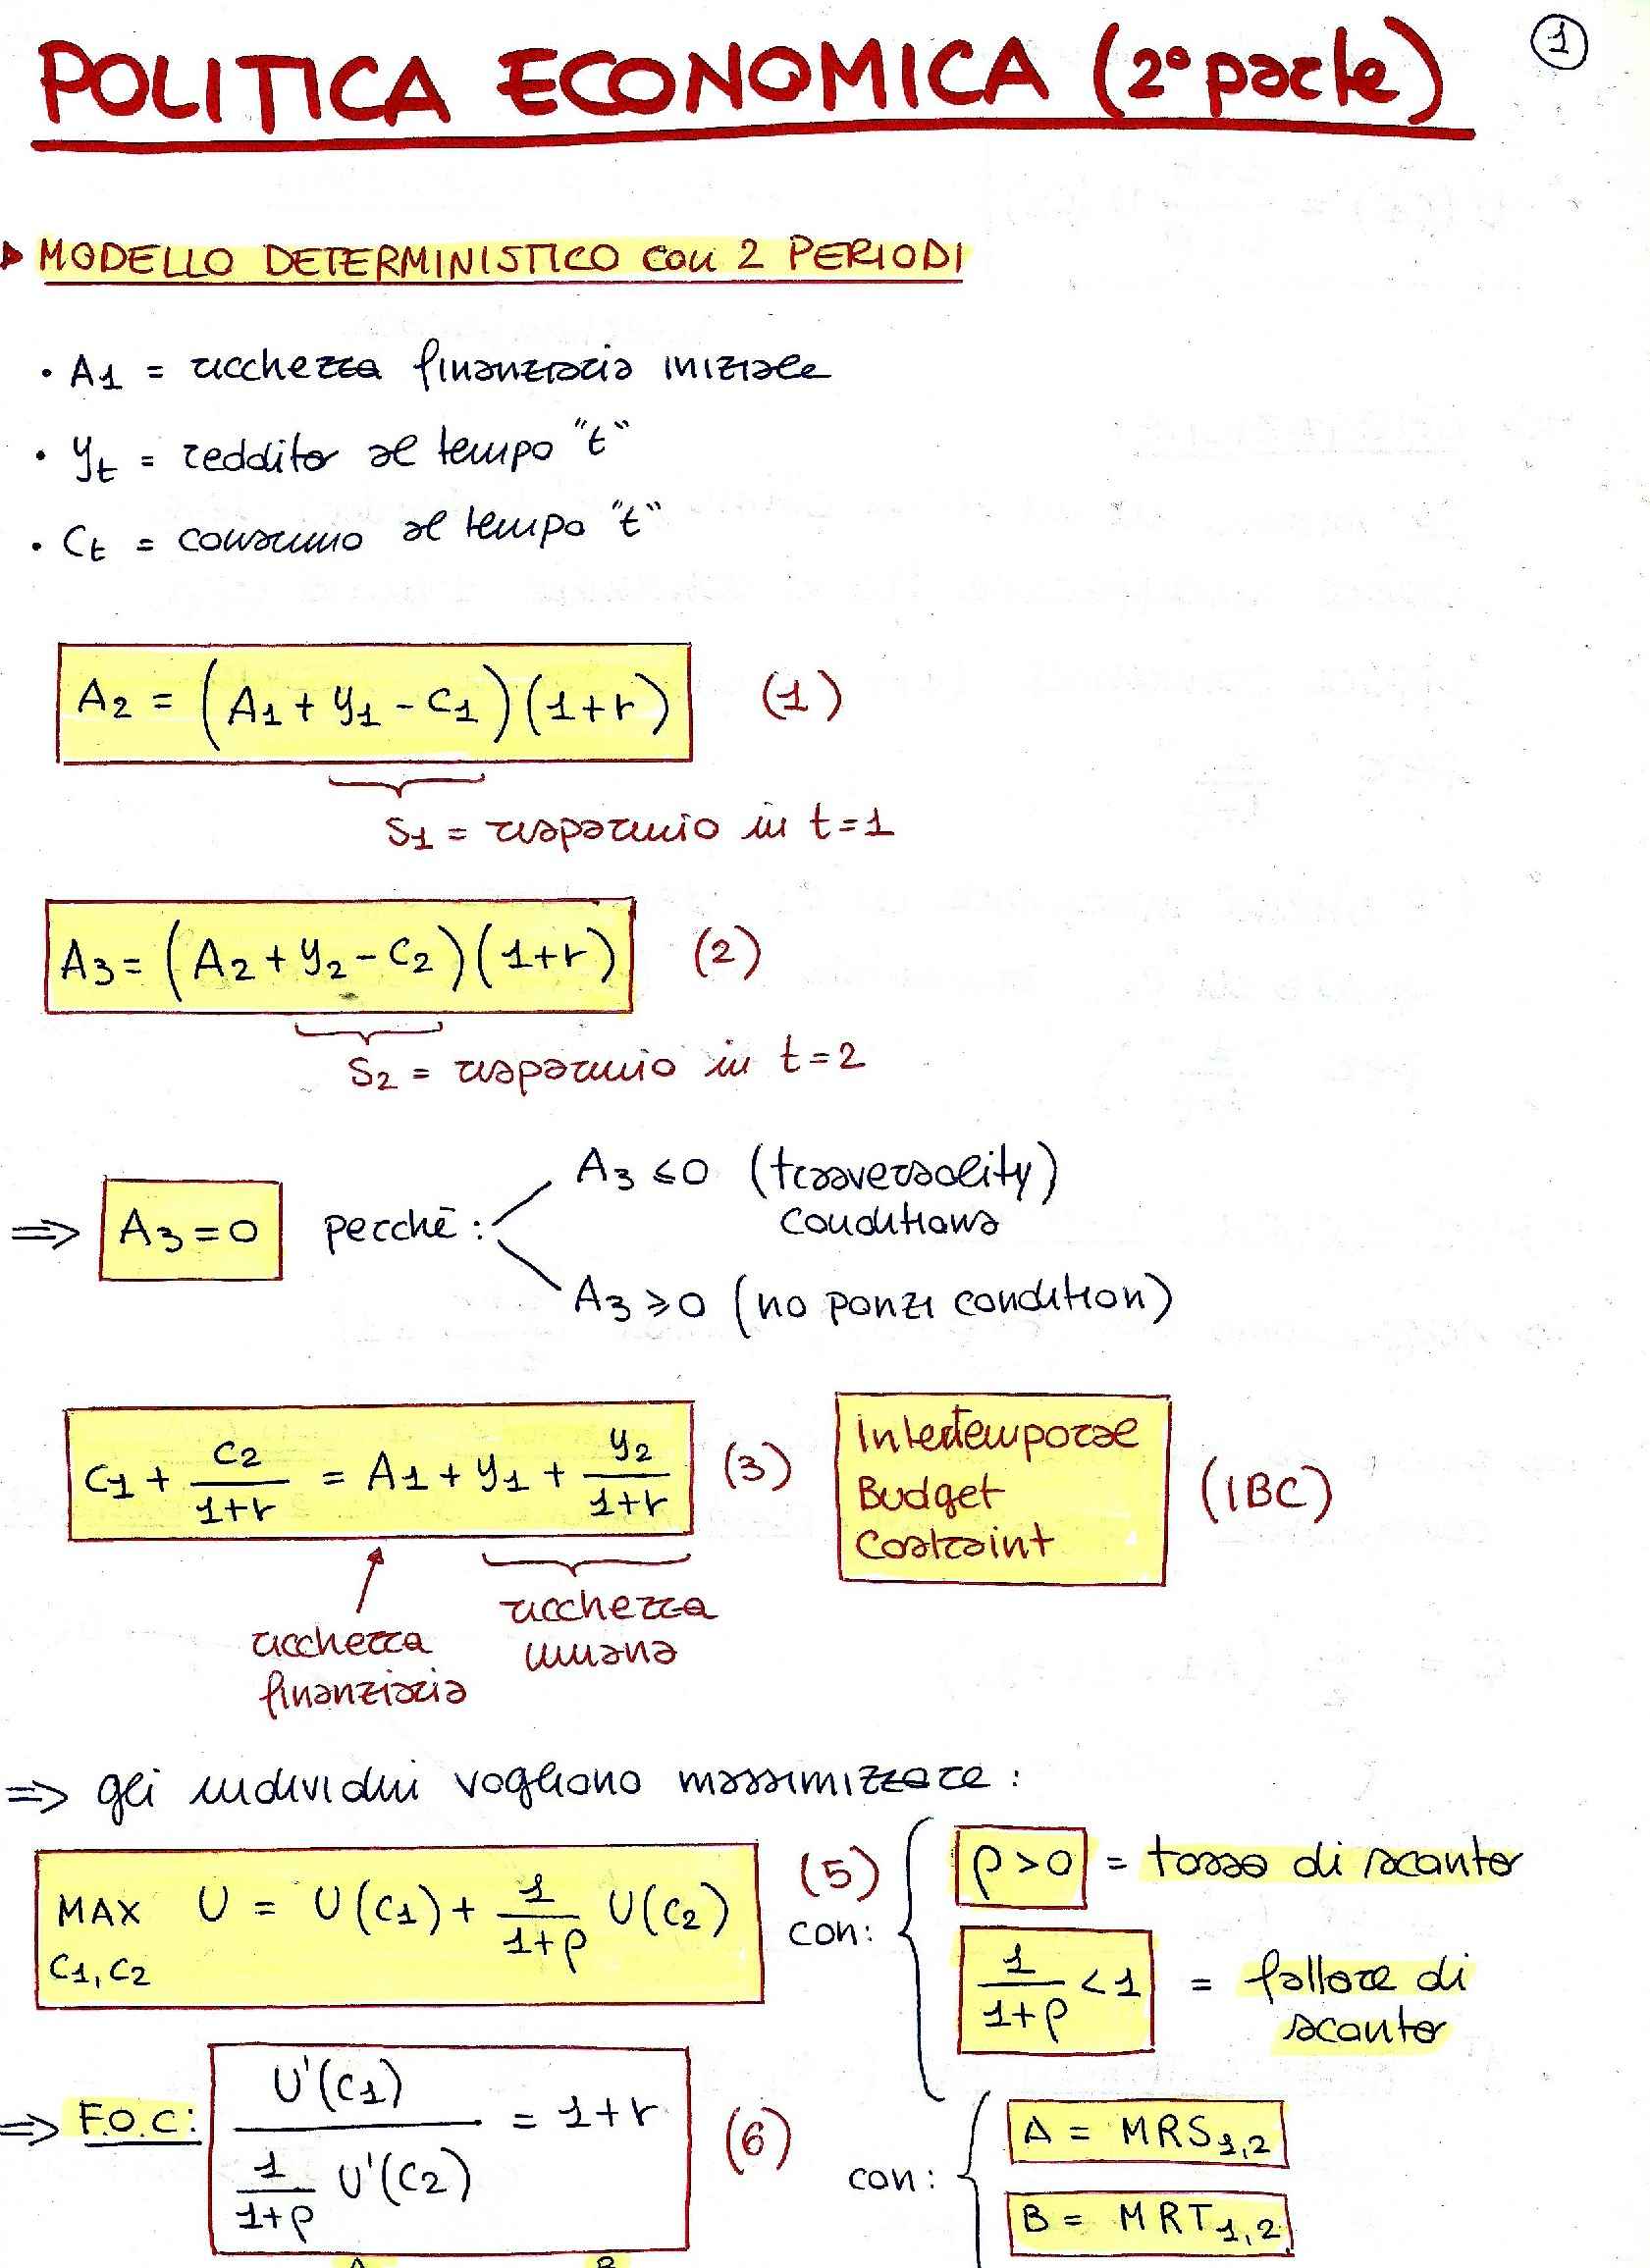 1
POLITICA ECONOMICA (2° parte)
MODELLO DETERMINISTICO con 2 PERIODI
• A1 = ricchezza finanziaria iniziale
• yt = reddito al tempo "t"
• Ct = consumo al tempo "t"
A2 = (A1 + y1 - C1)(1+r) (1)
S1 = risparmio in t=1
A3 = (A2 + y2 - C2)(1+r) (2)
S2 = risparmio in t=2
A3 ≤ 0 (trasversality)
conditions
⇒ A3 = 0 perchè:
A3 ≥ 0 (no ponzi condition)
C1 + C2/1+r = A1 + y1 + y2/1+r (3)
Intertemporal
Budget
Costraint
(IBC)
ricchezza
umana
ricchezza
finanziaria
⇒ gli individui vogliono massimizzare:
MAX U = U(C1) + 1/1+ρ U(C2) (5)
C1, C2
con:
ρ>0 = tasso di sconto
1/1+ρ < 1 = fattore di
sconto
⇒ F.O.C: U'(C1) / 1/1+ρ U'(C2) = 1+r (6)
con:
A = MRS1,2
B = MRT1,2
A B